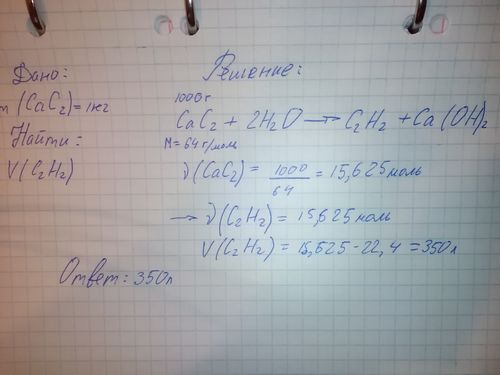 Дано:
m (CaC2) = 1кг
Найти:
V (C2H2)
Решение:
1000г
CaC2 + 2H2O → C2H2 + Ca(OH)2
M = 64 г/моль
ν(CaC2) = 1000/64 = 15,625 моль
→ ν(C2H2) = 15,625 моль
V(C2H2) = 15,625 - 22,4 = 350 л
Ответ: 350л